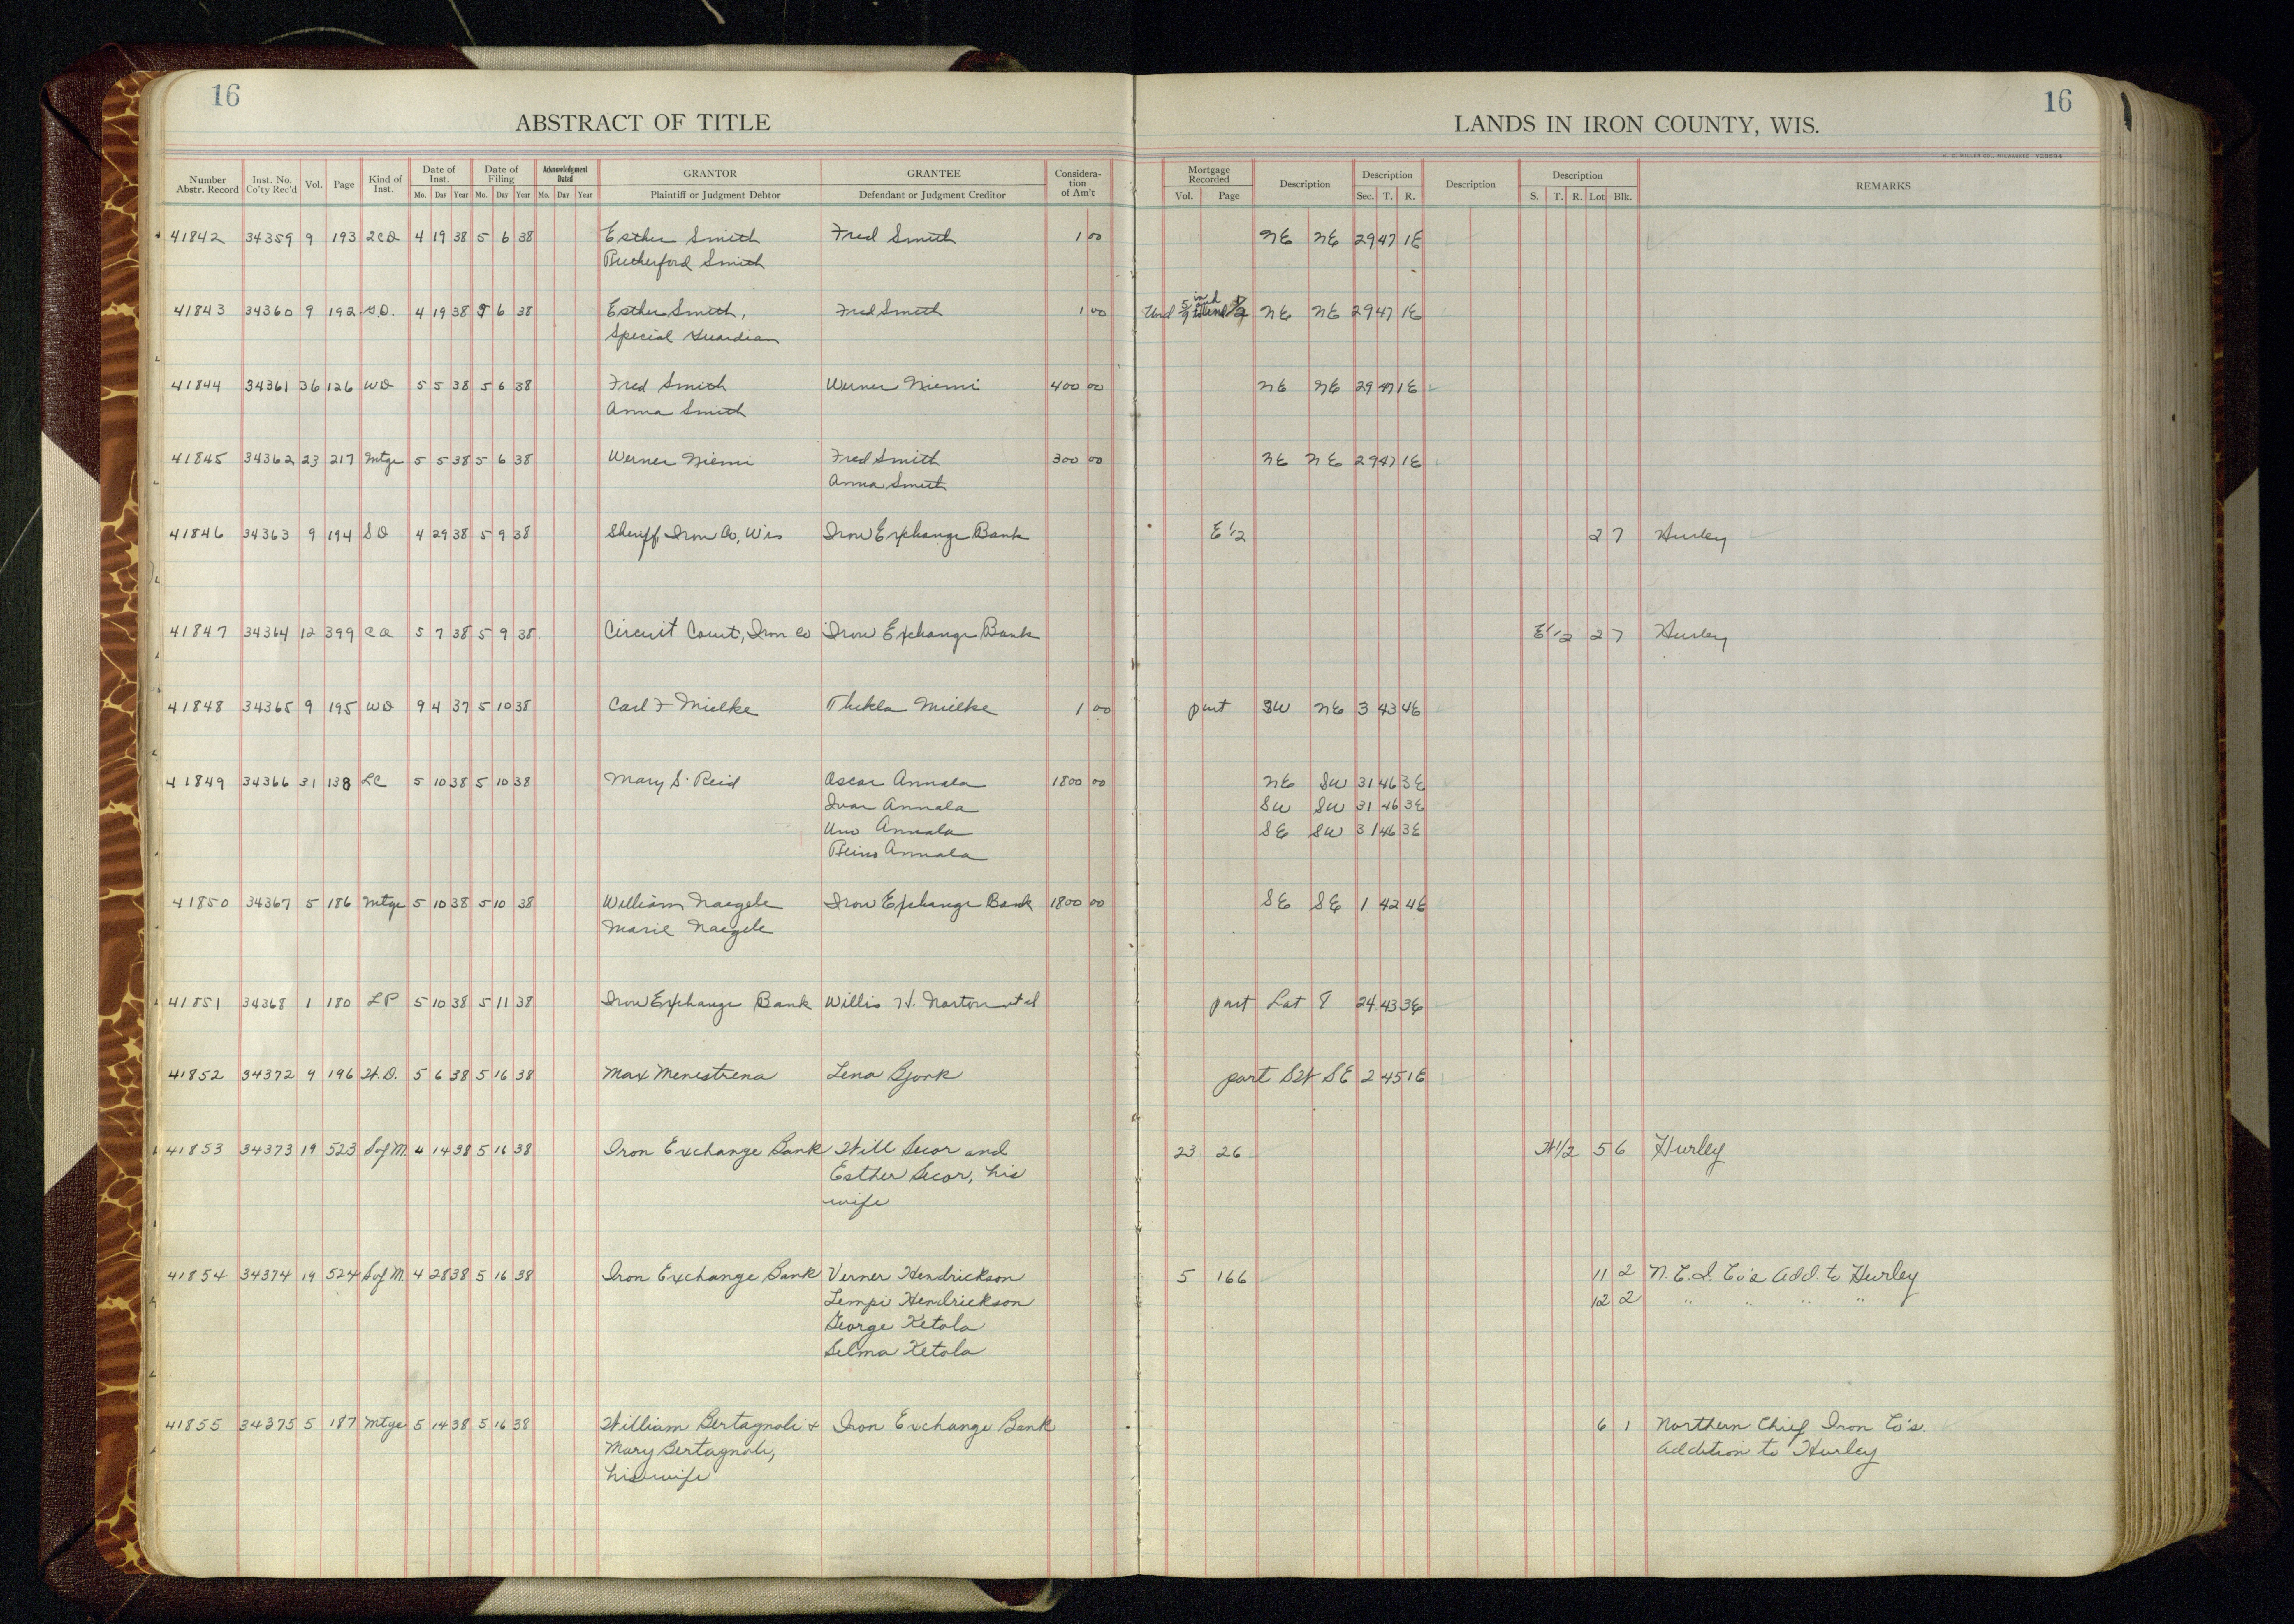 16
16
ABSTRACT OF TITLE
LANDS IN IRON COUNTY, WIS.
H. C. MILLER CO., MILWAUKEE V28694
Number Abstr. Record Inst. No. Co'ty Rec'd Vol. Page Kind of Inst. Date of Inst. Mo. Day Year Date of Filing Mo. Day Year Acknowledgment Dated Mo. Day Year GRANTOR Plaintiff or Judgment Debtor GRANTEE Defendant or Judgment Creditor Considera-tion of Am't Mortgage Recorded Vol. Page Description Description Sec. T. R. Description Description S. T. R. Lot Blk. REMARKS
41842 34359 9 193 2CD 4 19 38 5 6 38 Esther Smith Fred Smith 1 00 NE NE 29 47 1E
Rutherford Smith
41843 34360 9 192 G.D. 4 19 38 5 6 38 Esther Smith, Fred Smith 1 00 Und 5/9 in and NE NE 29 47 1E
Special Guardian
41844 34361 36 126 WD 5 5 38 5 6 38 Fred Smith Werner Niemi 400 00 NE NE 29 47 1E
Anna Smith
41845 34362 23 217 Mtge 5 5 38 5 6 38 Werner Niemi Fred Smith 300 00 NE NE 29 47 1E
Anna Smith
41846 34363 9 194 SD 4 29 38 5 9 38 Sheriff, Iron Co, Wis Iron Exchange Bank E 1/2 2 7 Hurley
41847 34364 12 399 5 7 38 5 9 38 Circuit Court, Iron Co Iron Exchange Bank E 1/2 2 7 Hurley
41848 34365 9 195 WD 9 4 37 5 10 38 Carl F Mielke Thekla Mielke 1 00 part SW NE 3 43 4E
41849 34366 31 138 LC 5 10 38 5 10 38 Mary S. Reid Oscar Annala 1800 00 NE SW 31 46 3E
Ivar Annala SW SW 31 46 3E
Uno Annala SE SW 31 46 3E
Reino Annala
41850 34367 5 186 Mtge 5 10 38 5 10 38 William Naegele Iron Exchange Bank 1800 00 SE SE 1 42 4E
Marie Naegele
41851 34368 1 180 LP 5 10 38 5 11 38 Iron Exchange Bank Willis H. Norton et al part Lot 8 24 43 3E
41852 34372 9 196 W.D. 5 6 38 5 16 38 Max Menestrena Lena Bjork part SW SE 2 45 1E
41853 34373 19 523 S of M. 4 14 38 5 16 38 Iron Exchange Bank Will Secor and 23 26 W 1/2 5 6 Hurley
Esther Secor, his
wife
41854 34374 19 524 S of M. 4 28 38 5 16 38 Iron Exchange Bank Verner Hendrickson 5 166 11 2 N. C. I. Co's Add. to Hurley
Lempi Hendrickson 12 2 " " " "
George Ketola
Selma Ketola
41855 34375 5 187 Mtge 5 14 38 5 16 38 William Bertagnoli & Iron Exchange Bank 6 1 Northern Chief Iron Co's.
Mary Bertagnoli, Addition to Hurley
his wife